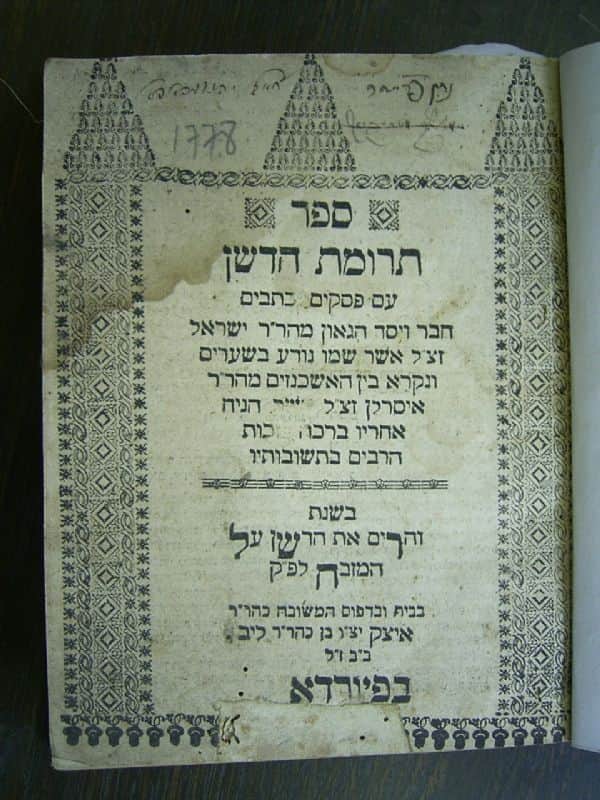 1778
ספר
תרומת הדשן
עם פסקים וכתבים
חבר ויסד הגאון מהר״ר ישראל
זצ״ל אשר שמו נורע בשערים
ונקרא בין האשכנזים מהר״ר
איסרלן זצ״ל הניח
אחריו ברכה
הרבים בתשובותיו
בשנת
והרים את הדשן על
המזבח לפ״ק
בבית ובדפוס המשובח כהר״ר
איצק יצ״ו בן כהר״ר ליב
ב״ב ז״ל
בפיורדא